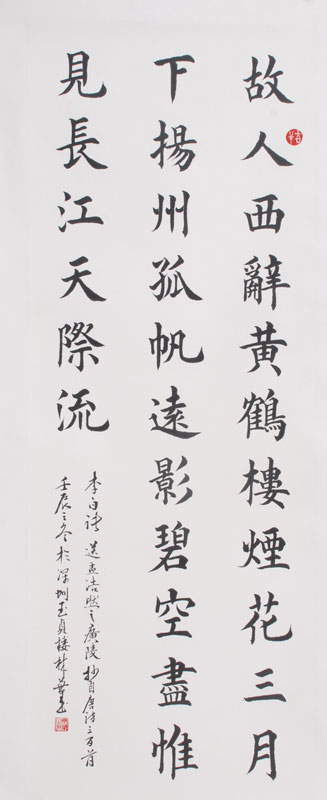 故人西辭黃鶴樓煙花三月
下揚州孤帆遠影碧空盡惟
見長江天際流
李白詩送孟浩然之廣陵抄自唐詩三百首
壬辰之冬於深圳玉貞樓林